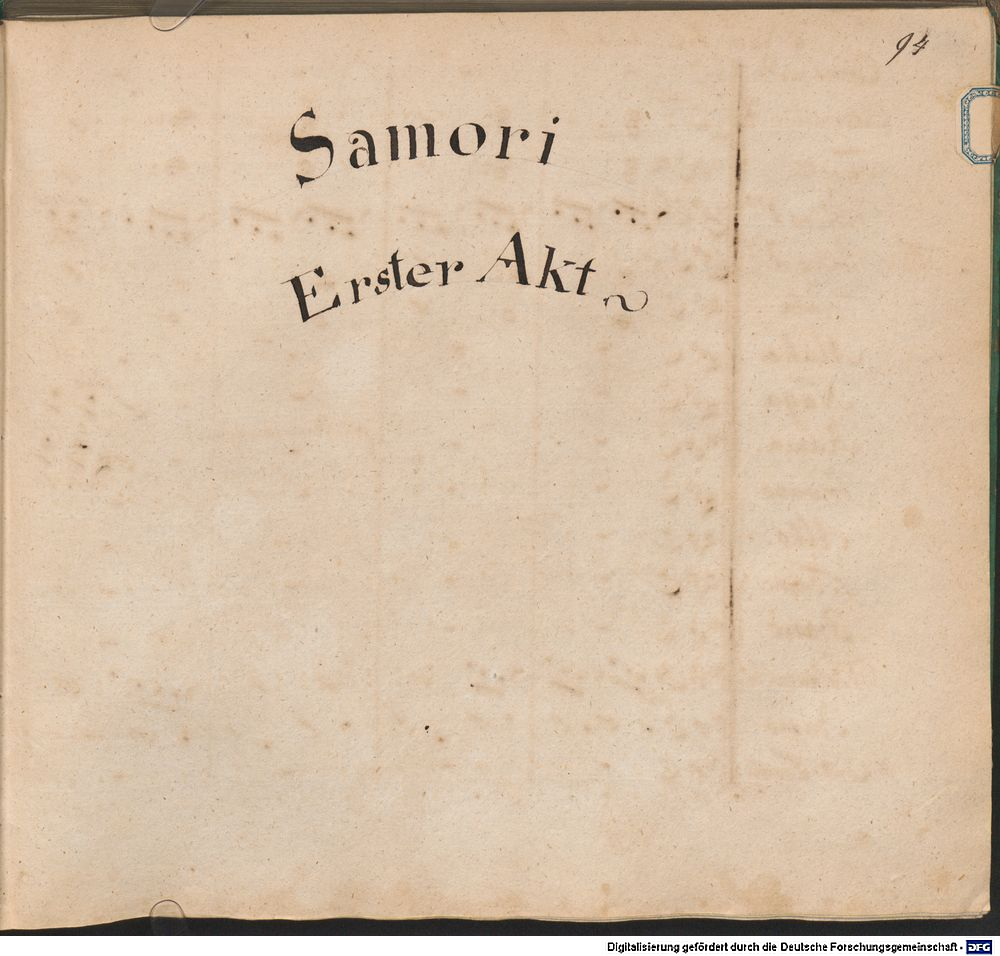 94
Samori
Erster Akt
Digitalisierung gefördert durch die Deutsche Forschungsgemeinschaft - DFG